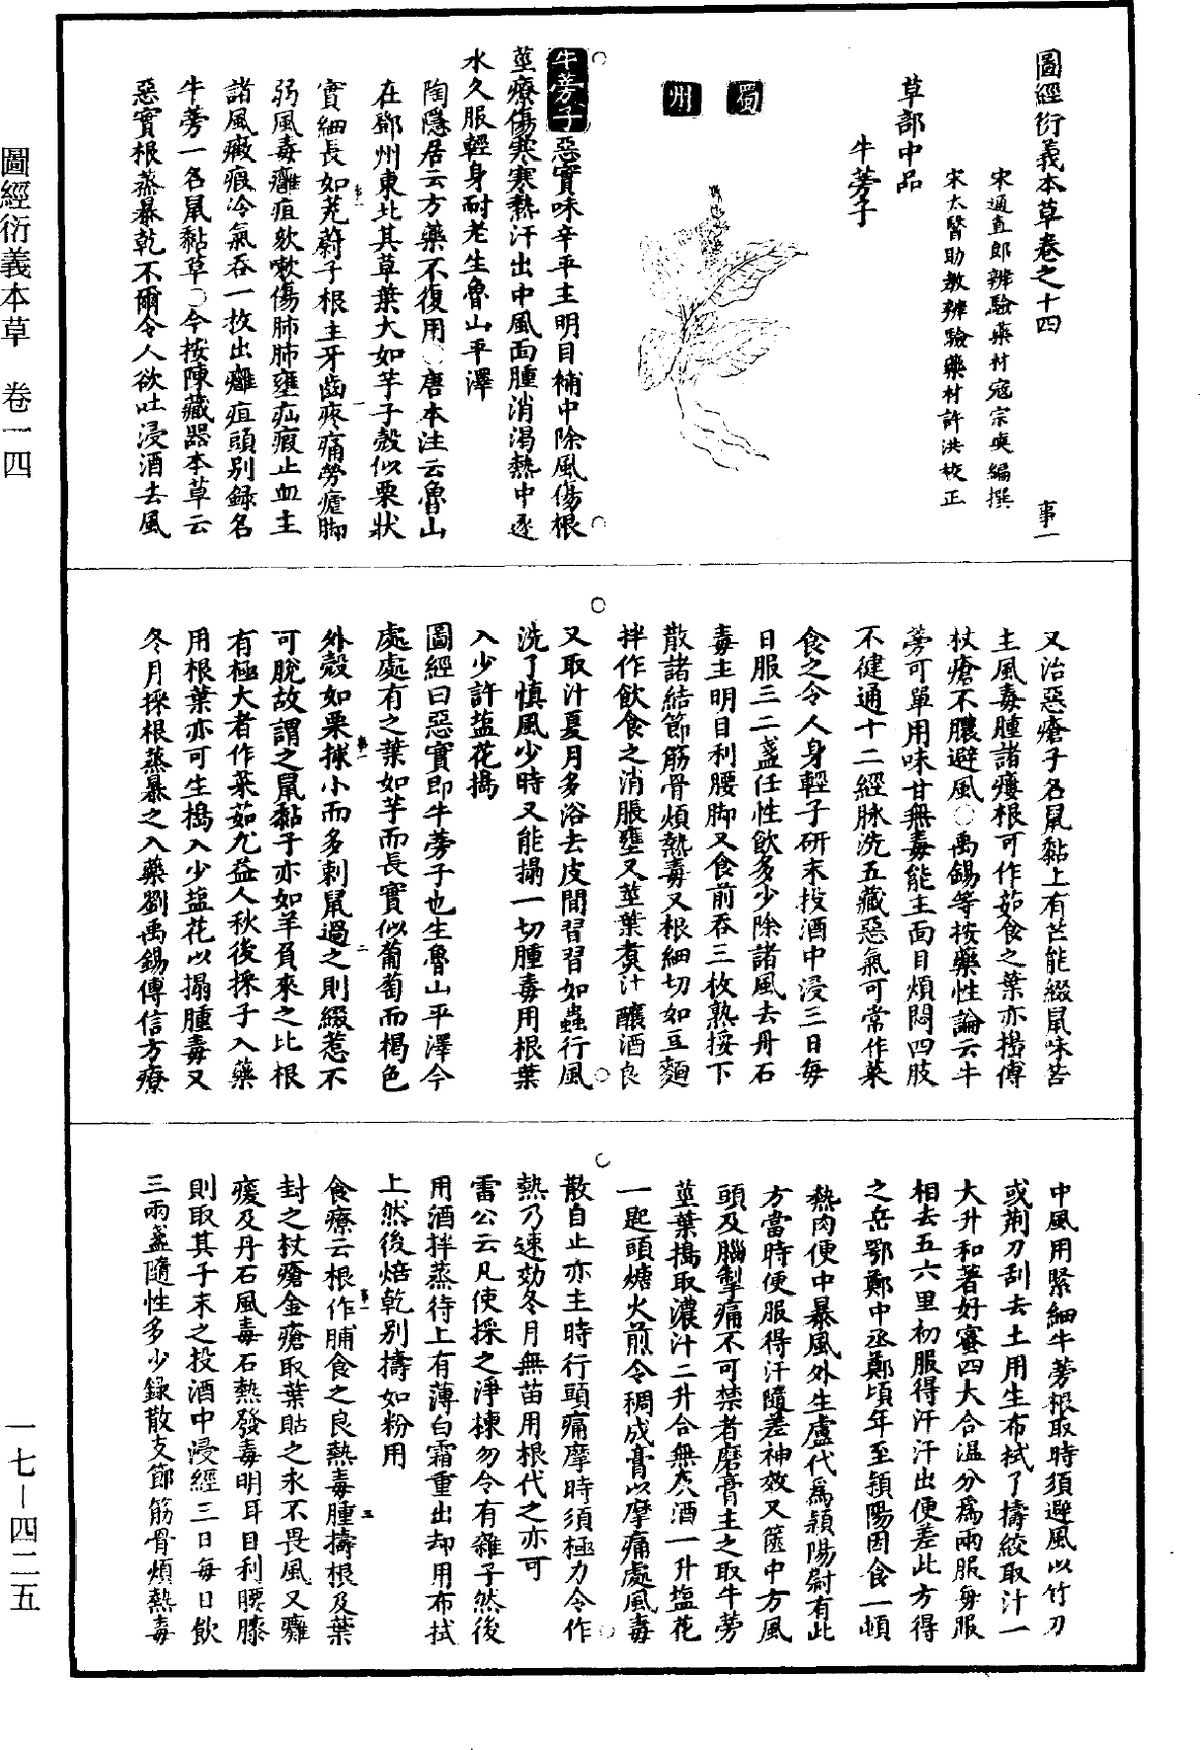 圖經衍義本草卷之十四 事一
宋通直郎辨驗藥材寇宗奭編撰
宋太醫助教辨驗藥材許洪校正
草部中品
牛蒡子
蜀
州
牛蒡子惡實味辛平主明目補中除風傷根
莖療傷寒寒熱汗出中風面腫消渴熱中逐
水久服輕身耐老生魯山平澤
陶隱居云方藥不復用○唐本注云魯山
在鄧州東北其草葉大如芋子殼似栗狀
實細長如茺蔚子根主牙齒疼痛勞瘧脚
弱風毒癰疽欬嗽傷肺肺壅疝瘕止血主
諸風癥瘕冷氣吞一枚出癰疽頭別録名
牛蒡一名鼠黏草○今按陳藏器本草云
惡實根蒸暴乾不爾令人欲吐浸酒去風
又治惡瘡子名鼠黏上有芒能綴鼠味苦
主風毒腫諸瘻根可作茹食之葉亦搗傅
杖瘡不膿避風○禹錫等按藥性論云牛
蒡可單用味甘無毒能主面目煩悶四肢
不健通十二經脉洗五藏惡氣可常作菜
食之令人身輕子研末投酒中浸三日每
日服三二盞任性飲多少除諸風去丹石
毒主明目利腰脚又食前吞三枚熟挼下
散諸結節筋骨煩熱毒又根細切如豆麵
拌作飲食之消脹壅又莖葉煑汁釀酒良
又取汁夏月多浴去皮間習習如蟲行風
洗了慎風少時又能搨一切腫毒用根葉
入少許鹽花搗
圖經曰惡實即牛蒡子也生魯山平澤今
處處有之葉如芋而長實似葡萄而褐色
外殼如栗梂小而多刺鼠過之則綴惹不
可脫故謂之鼠黏子亦如羊負來之比根
有極大者作菜茹尤益人秋後採子入藥
用根葉亦可生搗入少鹽花以搨腫毒又
冬月採根蒸暴之入藥劉禹錫傳信方療
中風用緊細牛蒡根取時須避風以竹刀
或荆刀刮去土用生布拭了擣絞取汁一
大升和著好蜜四大合温分爲兩服每服
相去五六里初服得汗汗出便差此方得
之岳鄂鄭中丞鄭頃年至潁陽因食一頓
熱肉便中暴風外生盧代爲潁陽尉有此
方當時便服得汗隨差神效又篋中方風
頭及腦掣痛不可禁者磨膏主之取牛蒡
莖葉擣取濃汁二升合無灰酒一升塩花
一匙頭煻火煎令稠成膏以摩痛處風毒
散自止亦主時行頭痛摩時須極力令作
熱乃速効冬月無苗用根代之亦可
雷公云凡使採之淨揀勿令有雜子然後
用酒拌蒸待上有薄白霜重出却用布拭
上然後焙乾別擣如粉用
食療云根作脯食之良熱毒腫擣根及葉
封之杖瘡金瘡取葉貼之永不畏風又癰
瘓及丹石風毒石熱發毒明耳目利腰膝
則取其子末之投酒中浸經三日每日飲
三兩盞隨性多少録散支節筋骨煩熱毒
圖經衍義本草 卷一四
一七—四二五